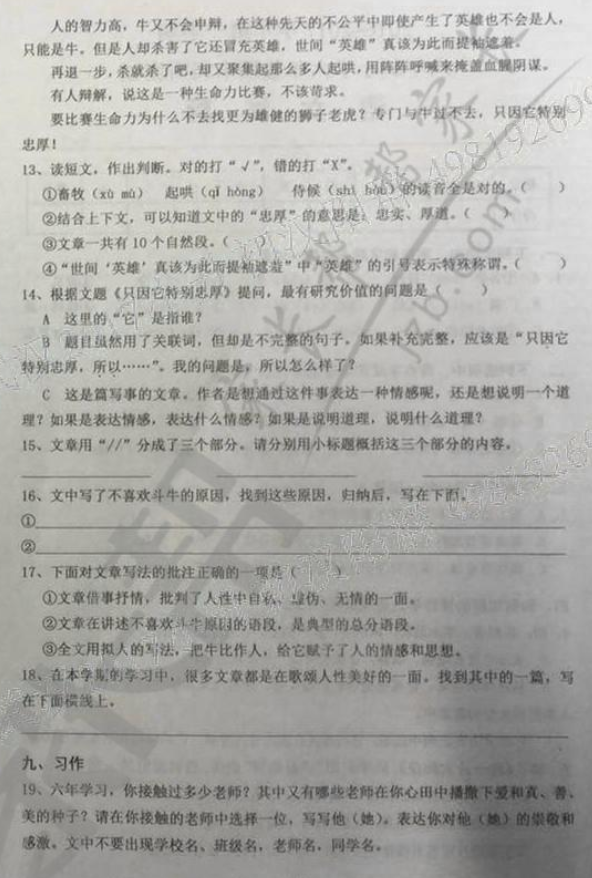 人的智力高，牛又不会申辩，在这种先天的不公平中即使产生了英雄也不会是人，
只能是牛。但是人却杀害了它还冒充英雄，世间“英雄”真该为此而提袖遮羞。
再退一步，杀就杀了吧，却又聚集起那么多人起哄，用阵阵呼喊来掩盖血腥阴谋。
有人辩解，说这是一种生命力比赛，不该苛求。
要比赛生命力为什么不去找更为雄健的狮子老虎？专门与牛过不去，只因它特别
忠厚！
13、读短文，作出判断。对的打“√”，错的打“X”。
①畜牧（xù mù） 起哄（qǐ hòng） 侍候（shì hòu）的读音全是对的。（ ）
②结合上下文，可以知道文中的“忠厚”的意思是：忠实、厚道。（ ）
③文章一共有10个自然段。（ ）
④“世间‘英雄’真该为此而提袖遮羞”中“英雄”的引号表示特殊称谓。（ ）
14、根据文题《只因它特别忠厚》提问，最有研究价值的问题是（ ）
A 这里的“它”是指谁？
B 题目虽然用了关联词，但却是不完整的句子。如果补充完整，应该是“只因它
特别忠厚，所以……”。我的问题是，所以怎么样了？
C 这是篇写事的文章。作者是想通过这件事表达一种情感呢，还是想说明一个道
理？如果是表达情感，表达什么情感？如果是说明道理，说明什么道理？
15、文章用“//”分成了三个部分。请分别用小标题概括这三个部分的内容。
16、文中写了不喜欢斗牛的原因，找到这些原因，归纳后，写在下面。
①
②
17、下面对文章写法的批注正确的一项是（ ）
①文章借事抒情，批判了人性中自私、虚伪、无情的一面。
②文章在讲述不喜欢斗牛原因的语段，是典型的总分语段。
③全文用拟人的写法，把牛比作人，给它赋予了人的情感和思想。
18、在本学期的学习中，很多文章都是在歌颂人性美好的一面。找到其中的一篇，写
在下面横线上。
九、习作
19、六年学习，你接触过多少老师？其中又有哪些老师在你心田中播撒下爱和真、善、
美的种子？请在你接触的老师中选择一位，写写他（她）。表达你对他（她）的崇敬和
感激。文中不要出现学校名、班级名，老师名，同学名。